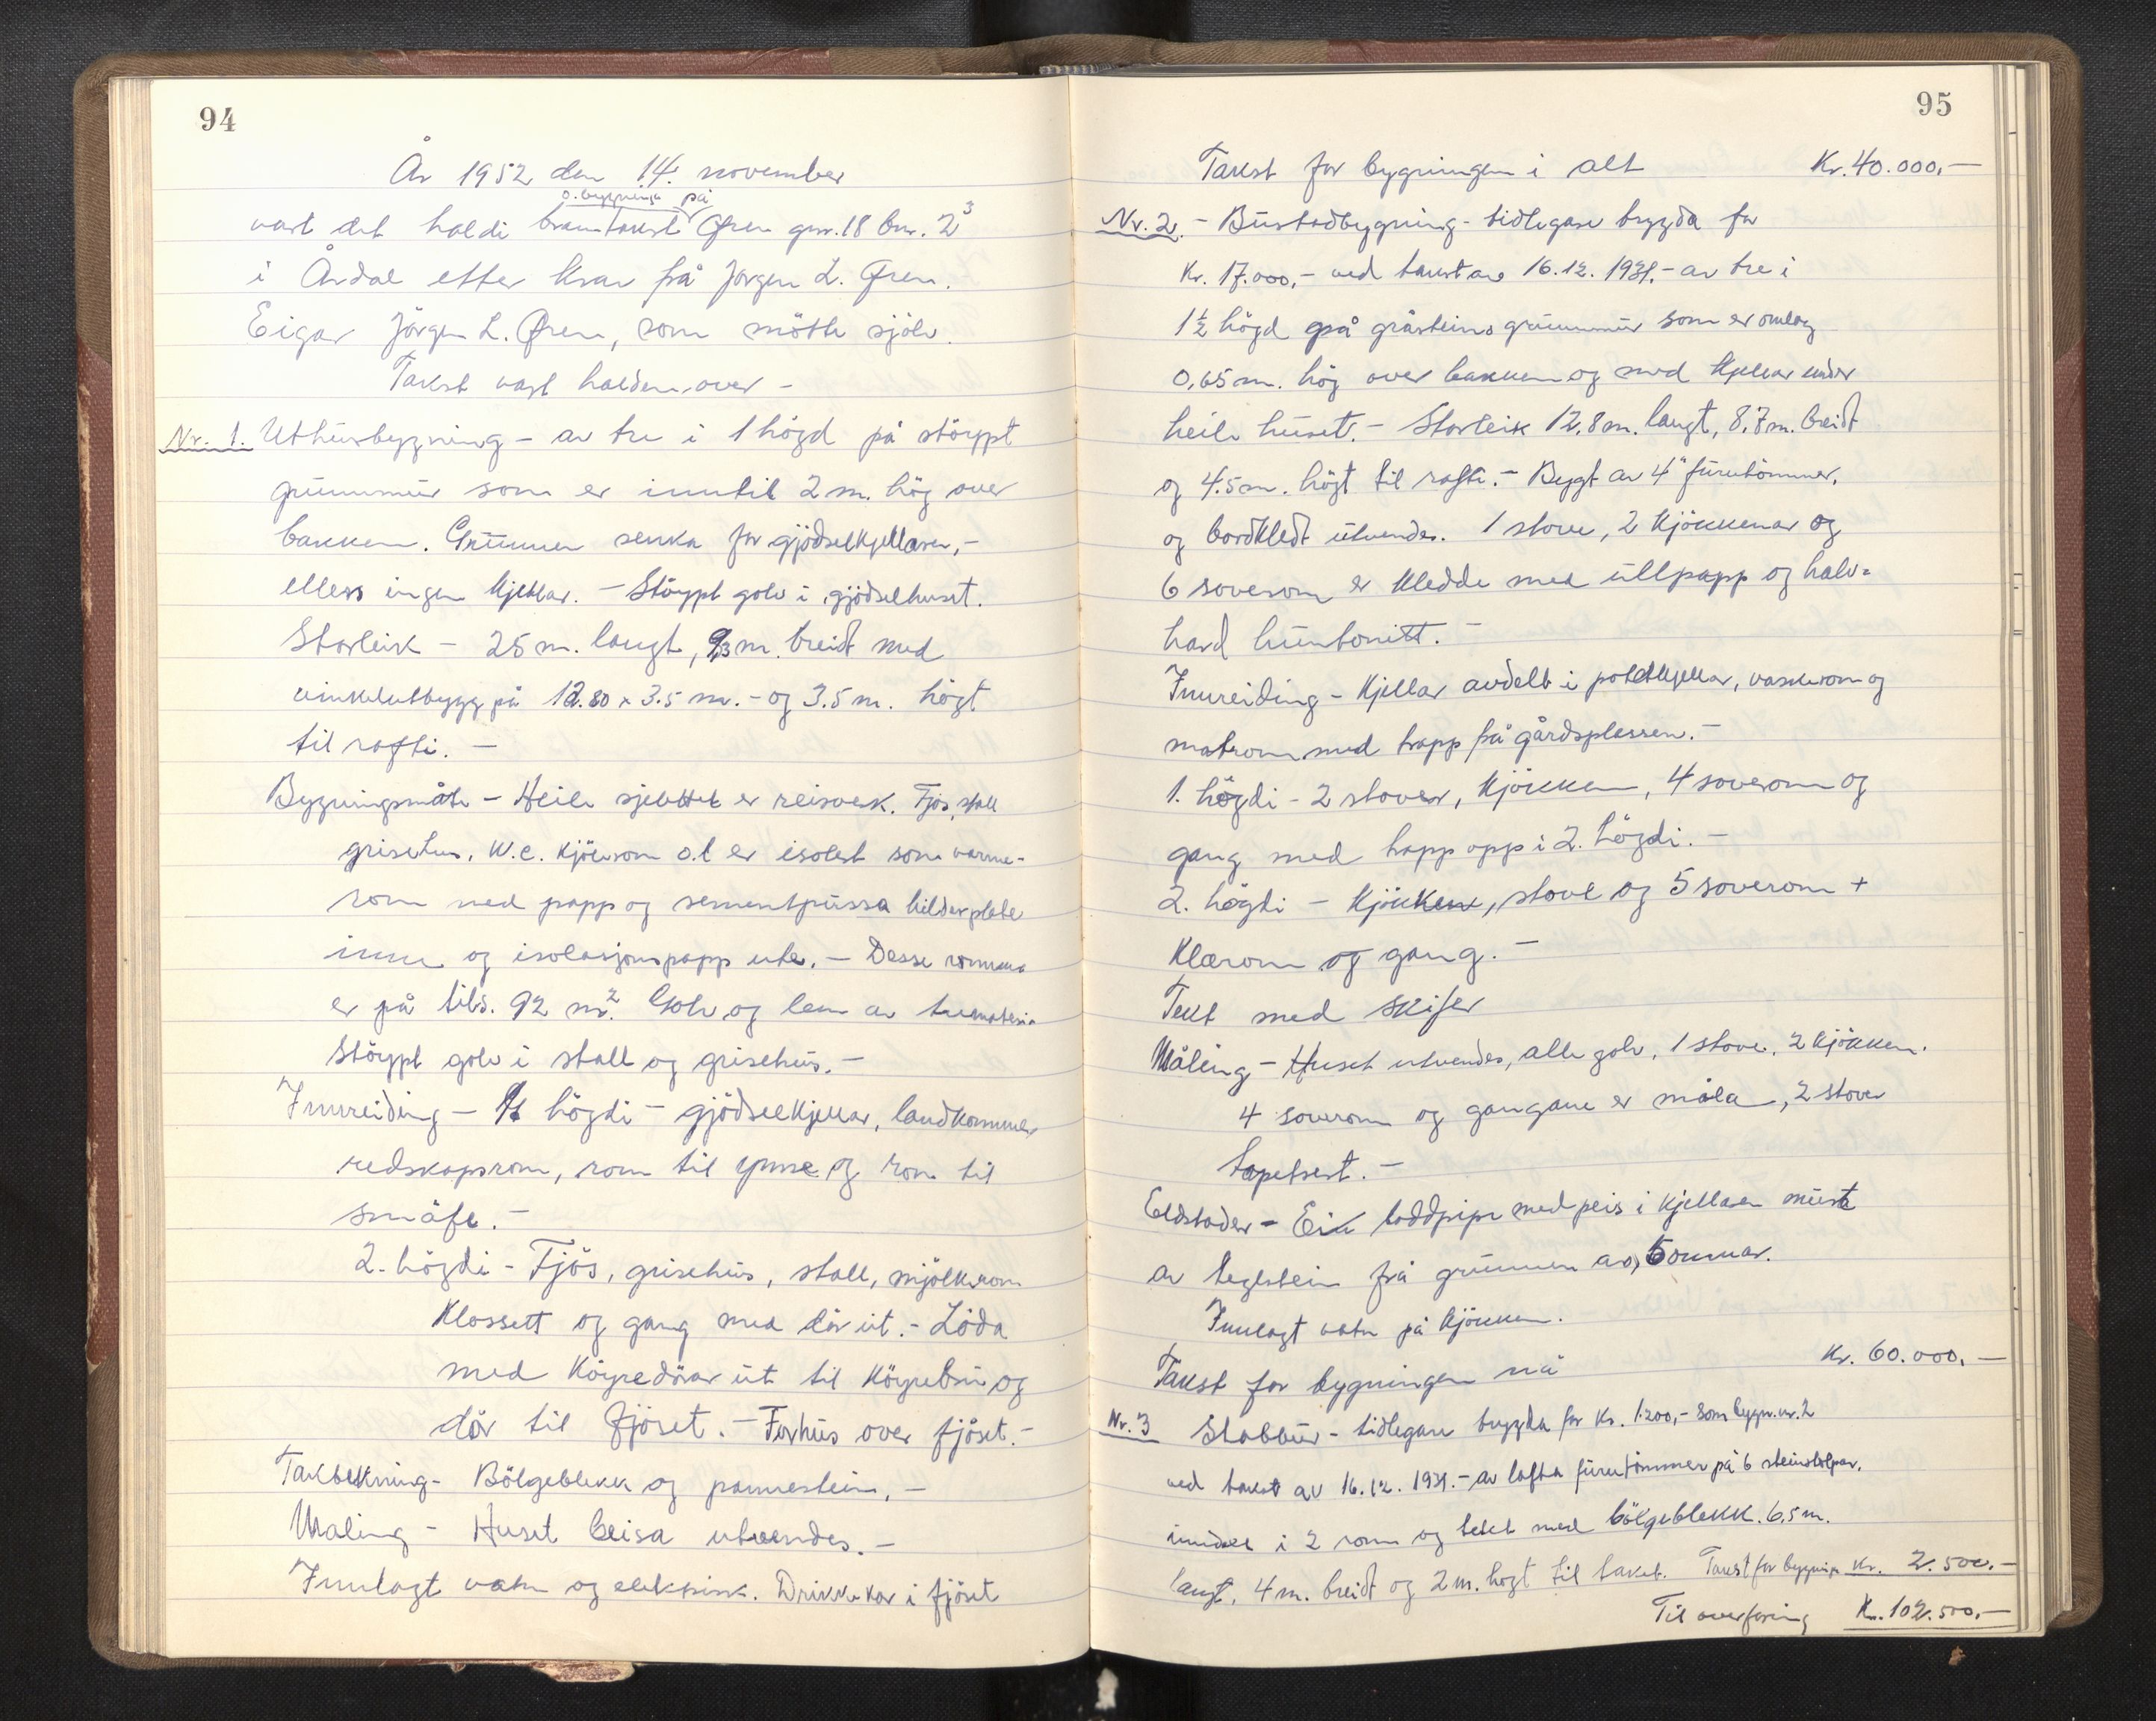 94
År 1952 den 14. november
o. bygninga på
vart det haldi branntakst Øren gnr. 18 bnr. 2³
i Årdal etter krav frå Jørgen L. Øren.
Eigar Jörgen L. Øren, som mötte sjölv.
Takst vart halden over –
Nr. 1. Uthusbygning – av tre i 1 högd på störypt
grunnmur som er inntil 2 m. hög over
bakken. Grunnen senka for gjödselkjellaren, –
ellers ingen kjellar. – Störypt golv i gjödselhuset.
Storleik – 25 m. langt, 9,3 m. breidt med
vinkelutbygg på 12.80 x 3.5 m. – og 3.5 m. högt
til rafti. –
Bygningsmåte – Heile sjelettet er reisverk. Fjös, stall
grisehus, W.c. kjölerom o.l er isolert som varme-
rom med papp og sementpussa bilderplate
inne og isolasjonspapp ute. – Desse romma
er på tils. 92 m². Golv og lem av tremateria
Störypt golv i stall og grisehus. –
Innreiding – 1. högdi – gjödselkjellar, landkommer
redskapsrom, rom til ymse og rom til
småfe. –
2. högdi – Fjös, grisehus, stall, mjölkerom
Klossett og gang med dör ut. – Löda
med Köyredörar ut til Köyrebru og
dör til fjöset. – Forhus over fjöset. –
Taktekning – Bölgeblekk og pannestein. –
Maling – Huset beisa utvendes. –
Innlagt vatn og elektrisk. Drikkekar i fjöset
95
Takst for bygningen i alt Kr. 40.000,–
Nr. 2. – Bustadbygning – tidlegare trygda for
Kr. 17.000,– ved takst av 16.12. 1931. – av tre i
1½ högd på gråsteins grunnmur som er omlag
0,65 m. hög over bakken og med kjellar under
heile huset. – Storleik 12,8 m. langt, 8,7 m. breidt
og 4.5 m. högt til rafti. – Bygt av 4" furutömmer,
og bordkledt utvendes. 1 stove, 2 kjökkenar og
6 soverom er kledde med ullpapp og halv-
hard huntonitt. –
Innreiding – Kjellar avdelt i potetkjellar, vaskerom og
matrom med trapp frå gårdsplassen. –
1. högdi – 2 stover, kjökken, 4 soverom og
gang med trapp opp i 2. högdi. –
2. högdi – Kjökken, stove og 5 soverom +
Klærom og gang. –
Tekt med skifer
Måling – Huset utvendes, alle golv, 1 stove, 2 kjökken.
4 soverom og gangane er måla, 2 stover
tapetsert. –
Eldstader – Ein loddpipe med peis i kjellaren murt
av teglstein frå grunnen av, 5 omnar.
Innlagt vatn på kjökken.
Takst for bygningen nå Kr. 60.000,–
Nr. 3 Stabbur – tidlegare trygda for Kr. 1.200,– som bygn. nr. 2
ved takst av 16.12. 1931. – av lafta furutömmer på 6 steinstolpar,
innder i 2 rom og tekt med bölgeblekk. 6,5 m.
langt, 4 m. breidt og 2 m. högt til taket. Takst for bygninga Kr. 2.500,–
Til overföring Kr. 102.500,–